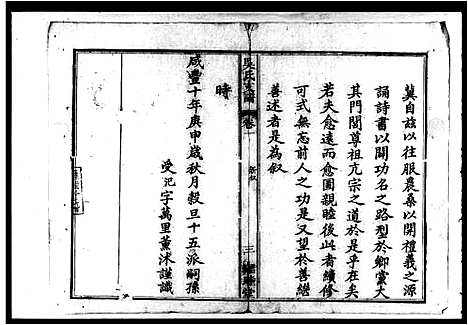 冀自兹以往服農桑以開禮義之源
誦詩書以開功名之路型於鄉黨大
其門閭尊祖亢宗之道於是乎在矣
若夫愈遠而愈圖親睦後此者續修
可式無忘前人之功是又望於善繼
善述者是為敘
吳氏支譜 卷 三
時
咸豐十年庚申歲秋月穀旦十五派嗣孫
受祀字萬里薰沐謹識